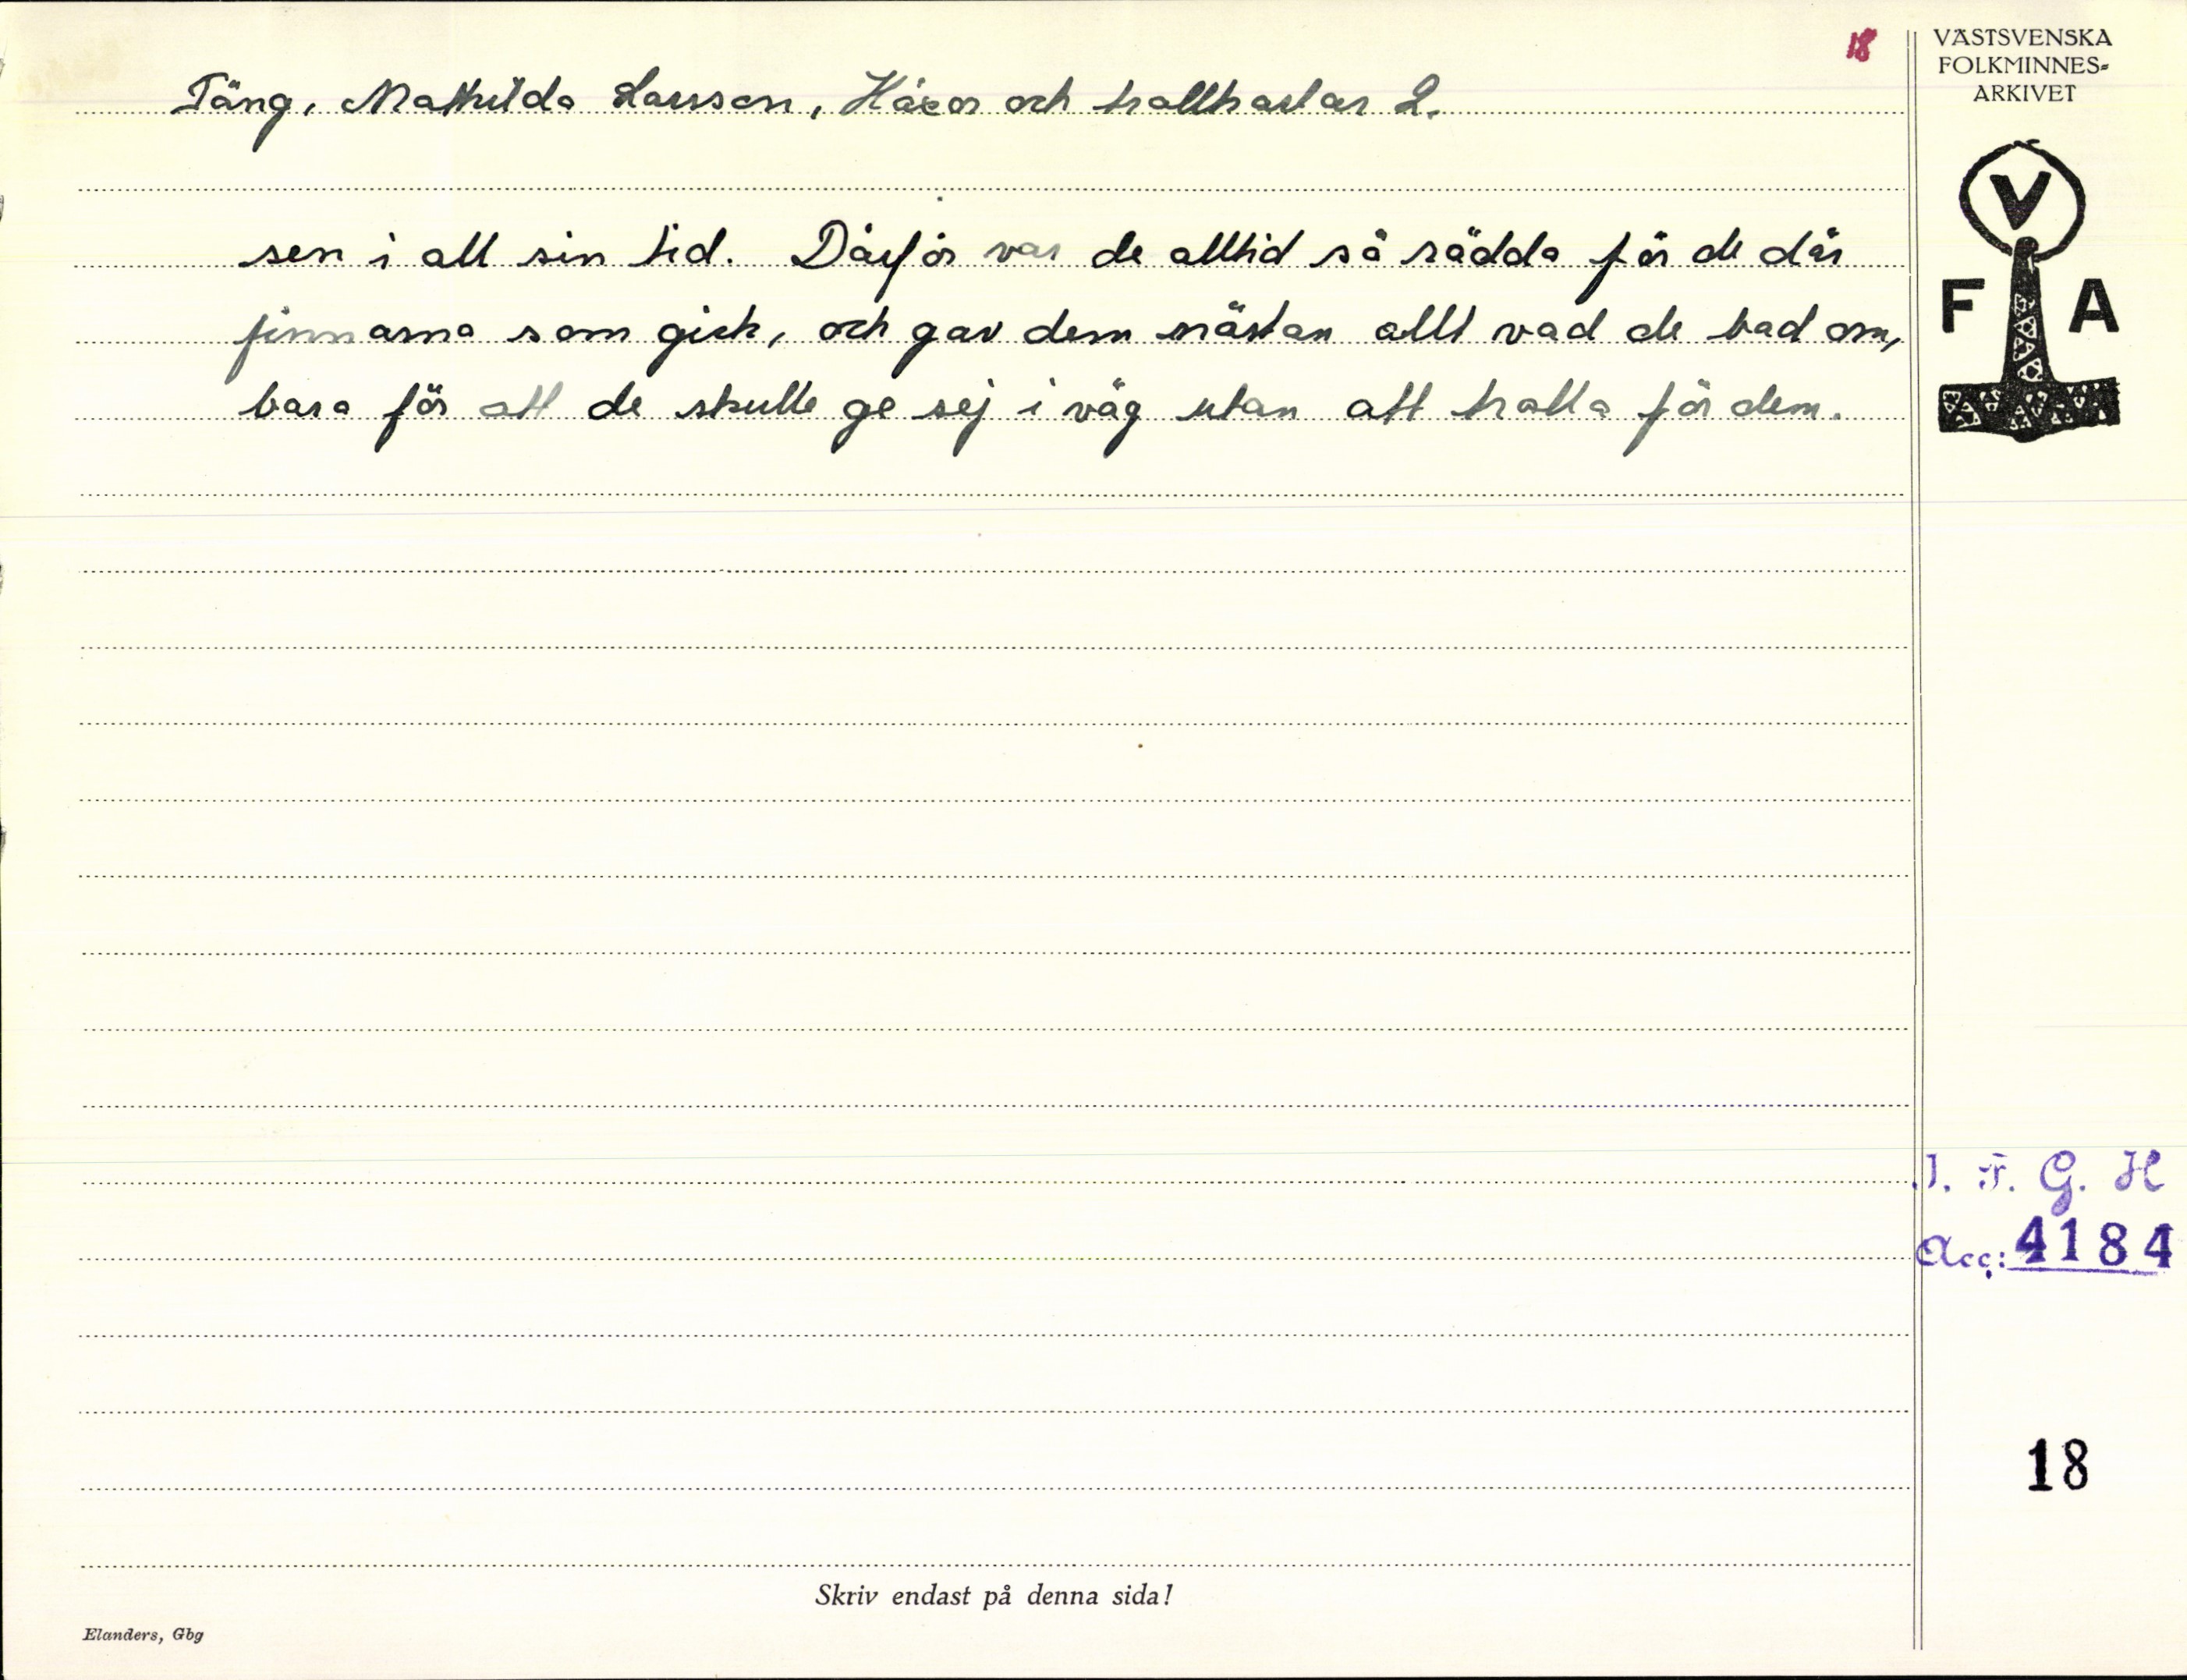 18
VÄSTSVENSKA
FOLKMINNES=
ARKIVET
Täng, Mathilda Larsson, Häxor och trollkarlar 2.
V
F A
sen i all sin tid. Därför var de alltid så rädda för de där
finnarna som gick, och gav dem nästan allt vad de bad om,
bara för att de skulle ge sej i väg utan att trolla för dem.
I. F. G. H
Acc: 4184
18
Skriv endast på denna sida!
Elanders, Gbg